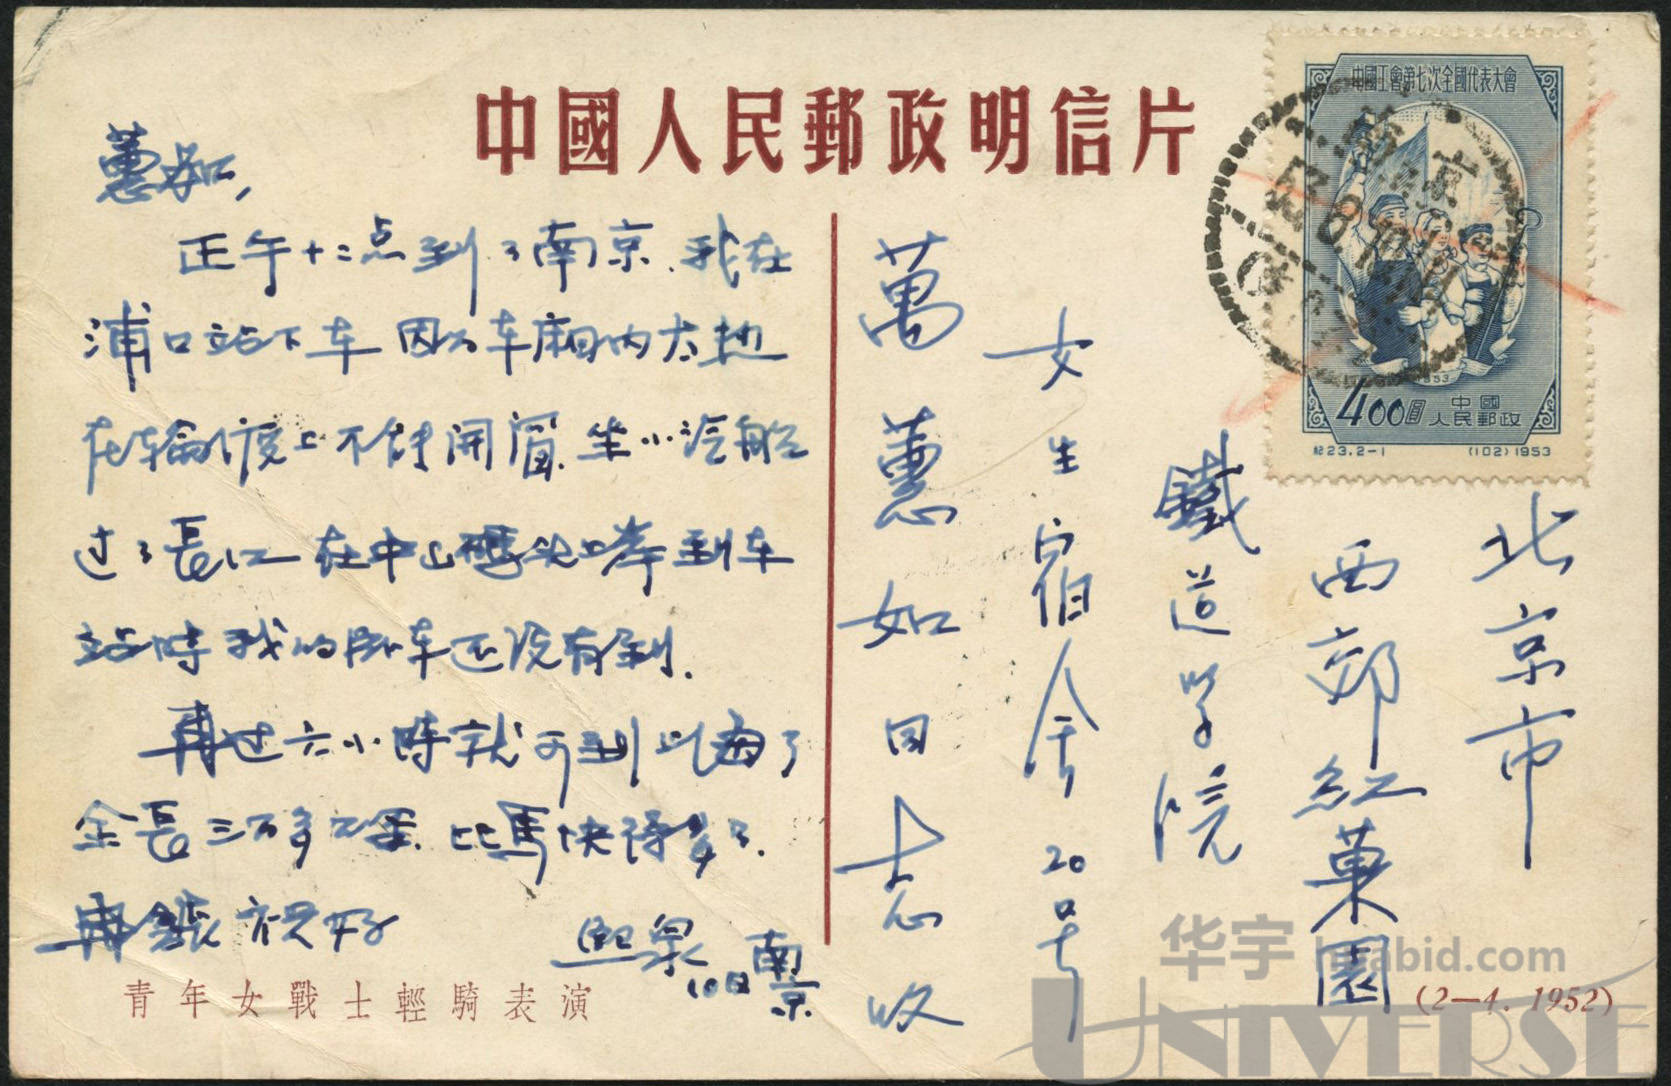 中國人民郵政明信片
蕙如,
正午十二点到了南京.我在
浦口站下车因为车廂内太热
在輪渡上不能開窗.坐小汽船
过了長江在中山碼头上岸到车
站時我的卧车还没有到.
再过六小時就可到上海了
全長三百多公里.比馬快得多了.
再談祝好
熙泉
10日南京
青年女戰士輕騎表演
(2—4.1952)
中國工會第七次全國代表大會
1953
400圓
中國
人民郵政
紀23.2-1
(102)1953
北京市
西郊紅菓園
鐵道学院
女生宿舍20号
萬蕙如同志收
华宇 huabid.com
UNIVERSE